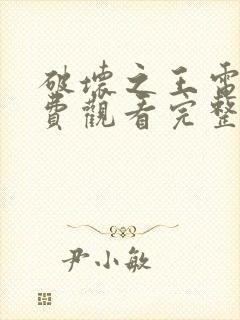 破壞之王電
費觀看完整
尹小敏